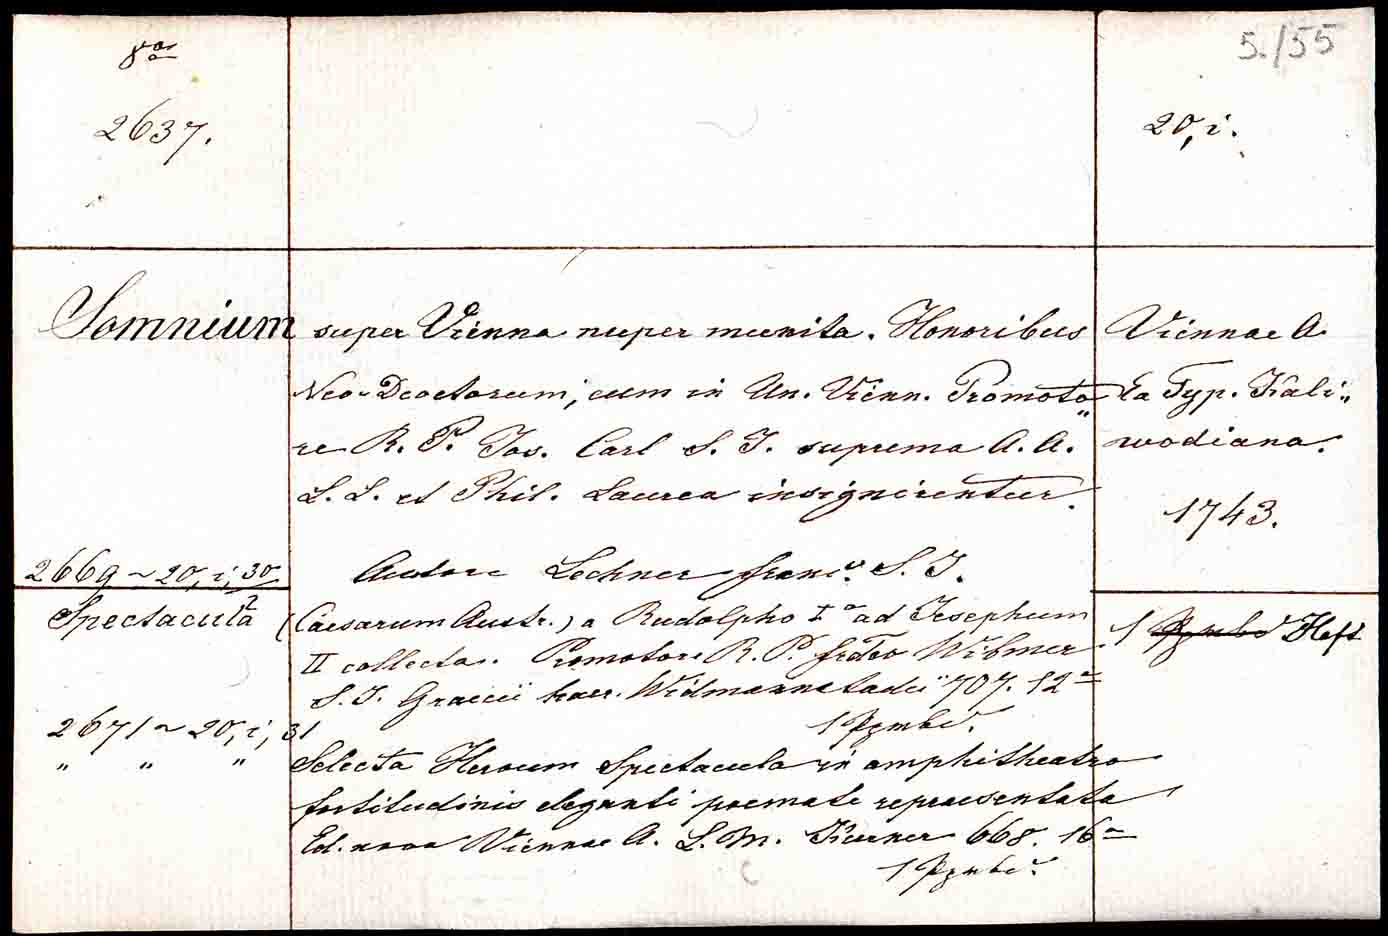 8º 5./55
2637. 20, i.
Somnium super Vienna nuper munita. Honoribus Viennae A.
Neo-Doctorum, cum in Un. Vienn. Promoto„ Ea Typ. Kali„
re R. P. Jos. Carl S. J. suprema A. A. wodiana.
L. L. et Phil. Laurea insignirentur. 1743.
2669 ~ 20, i, 30 Autore Lechner Franc. S. J.
Spectacula (Caesarum Austr.) a Rudolpho Iº ad Josephum 1 Heft
II collecta. Promotore R. P. Wibmer
S. J. Graecii haer. Widmannstadii 707. 12º
2671 ~ 20, i, 31 1 Pgmbd.
„ „ „ Selecta Heroum Spectacula in amphitheatro
fortitudinis eleganti poemate repraesentata
Ed. nova Viennae A. L. M. Kurner 668. 16º
1 Pgmbd.